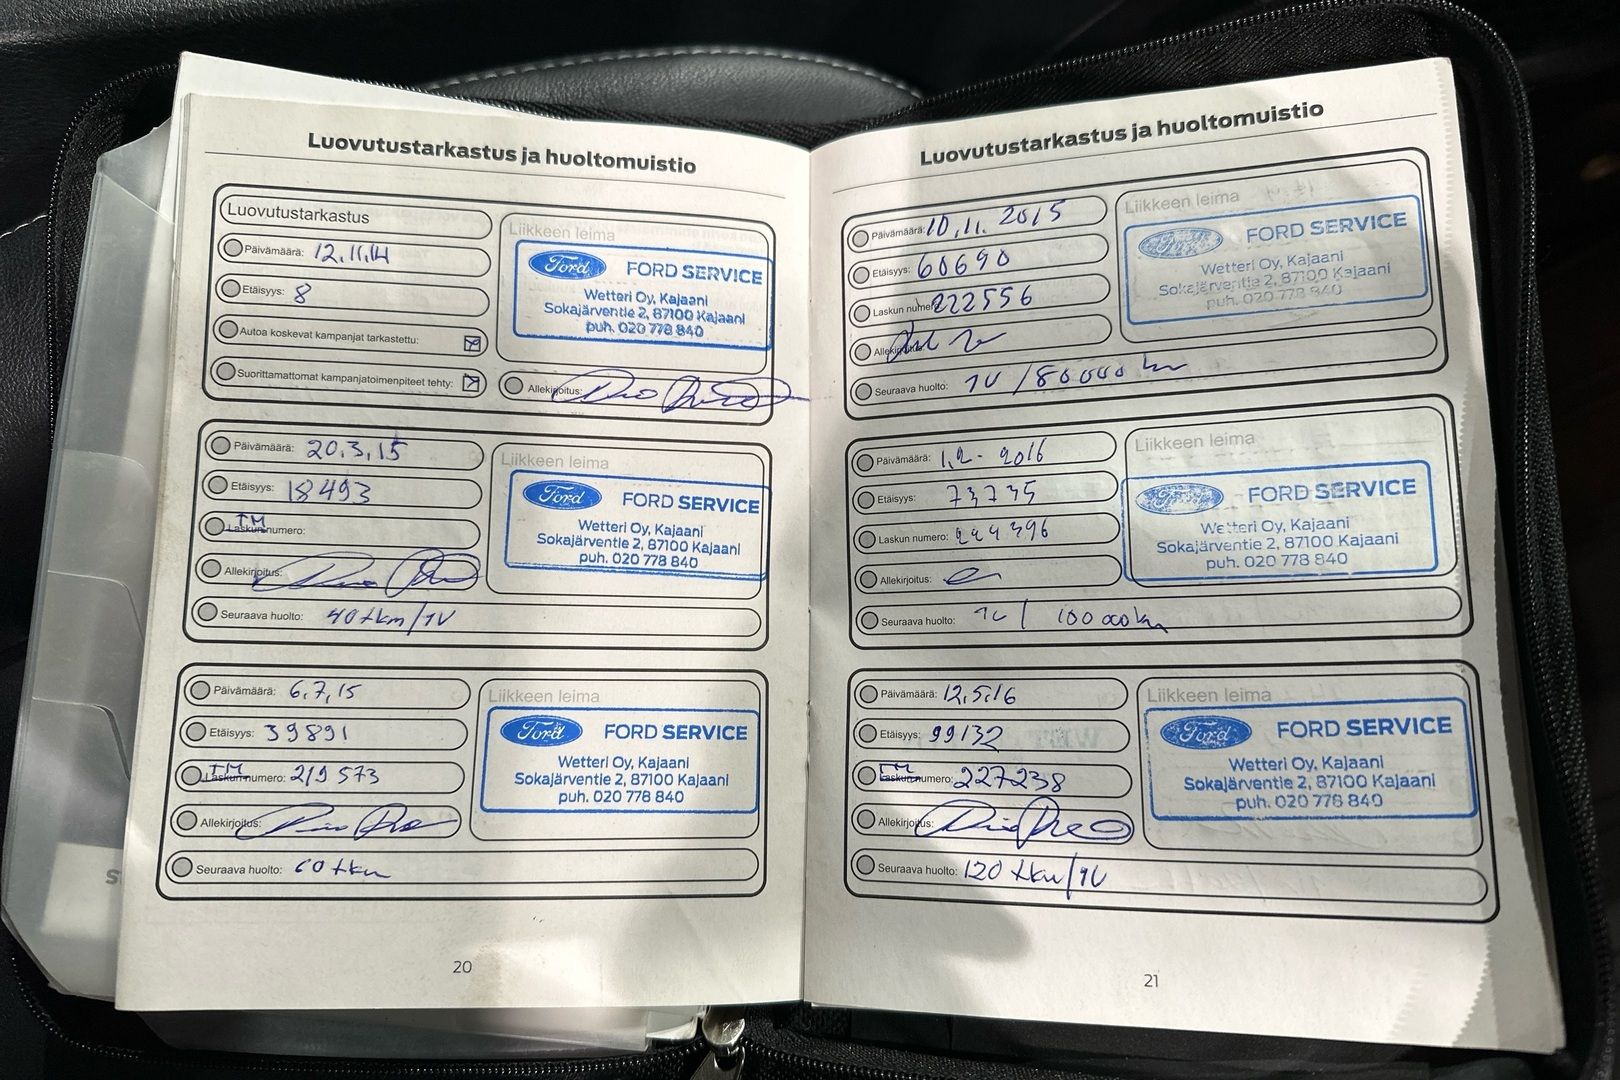 Luovutustarkastus ja huoltomuistio
Luovutustarkastus
Päivämäärä: 12.11.14
Etäisyys: 8
Autoa koskevat kampanjat tarkastettu:
Suorittamattomat kampanjatoimenpiteet tehty:
Liikkeen leima
Ford FORD SERVICE
Wetteri Oy, Kajaani
Sokajärventie 2, 87100 Kajaani
puh. 020 778 840
Allekirjoitus:
Päivämäärä: 20.3.15
Etäisyys: 18493
TM
Laskun numero:
Allekirjoitus:
Seuraava huolto: 40 tkm/1V
Liikkeen leima
Ford FORD SERVICE
Wetteri Oy, Kajaani
Sokajärventie 2, 87100 Kajaani
puh. 020 778 840
Päivämäärä: 6.7.15
Etäisyys: 39891
TM
Laskun numero: 219573
Allekirjoitus:
Seuraava huolto: 60 tkm
Liikkeen leima
Ford FORD SERVICE
Wetteri Oy, Kajaani
Sokajärventie 2, 87100 Kajaani
puh. 020 778 840
20
Luovutustarkastus ja huoltomuistio
Päivämäärä: 10.11.2015
Etäisyys: 60690
Laskun numero: 222556
Allekirjoitus:
Seuraava huolto: 1V /80000 km
Liikkeen leima
Ford FORD SERVICE
Wetteri Oy, Kajaani
Sokajärventie 2, 87100 Kajaani
puh. 020 778 840
Päivämäärä: 1.2-2016
Etäisyys: 73735
Laskun numero: 224396
Allekirjoitus:
Seuraava huolto: 1V / 100000km
Liikkeen leima
Ford FORD SERVICE
Wetteri Oy, Kajaani
Sokajärventie 2, 87100 Kajaani
puh. 020 778 840
Päivämäärä: 12.5.16
Etäisyys: 99132
TM
Laskun numero: 227238
Allekirjoitus:
Seuraava huolto: 120 tkm/1V
Liikkeen leima
Ford FORD SERVICE
Wetteri Oy, Kajaani
Sokajärventie 2, 87100 Kajaani
puh. 020 778 840
21